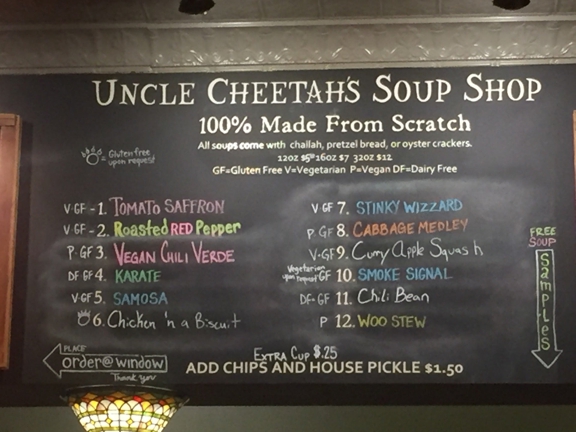 UNCLE CHEETAH'S SOUP SHOP
100% Made From Scratch
All soups come with challah, pretzel bread, or oyster crackers.
12oz $5 16oz $7 32oz $12
GF=Gluten Free V=Vegetarian P=Vegan DF=Dairy Free
= Gluten free upon request
V·GF - 1. TOMATO SAFFRON
V·GF - 2. Roasted RED Pepper
P·GF 3. VEGAN CHILI VERDE
DF GF 4. KARATE
V·GF 5. SAMOSA
6. Chicken 'n a Biscuit
V·GF 7. STINKY WIZZARD
P GF 8. CABBAGE MEDLEY
V·GF 9. Curry Apple Squash
Vegetarian upon request GF 10. SMOKE SIGNAL
DF·GF 11. Chili Bean
P 12. WOO STEW
FREE
SOUP
SAMPLES
PLACE
order@window
Thank you
EXTRA CUP $.25
ADD CHIPS AND HOUSE PICKLE $1.50